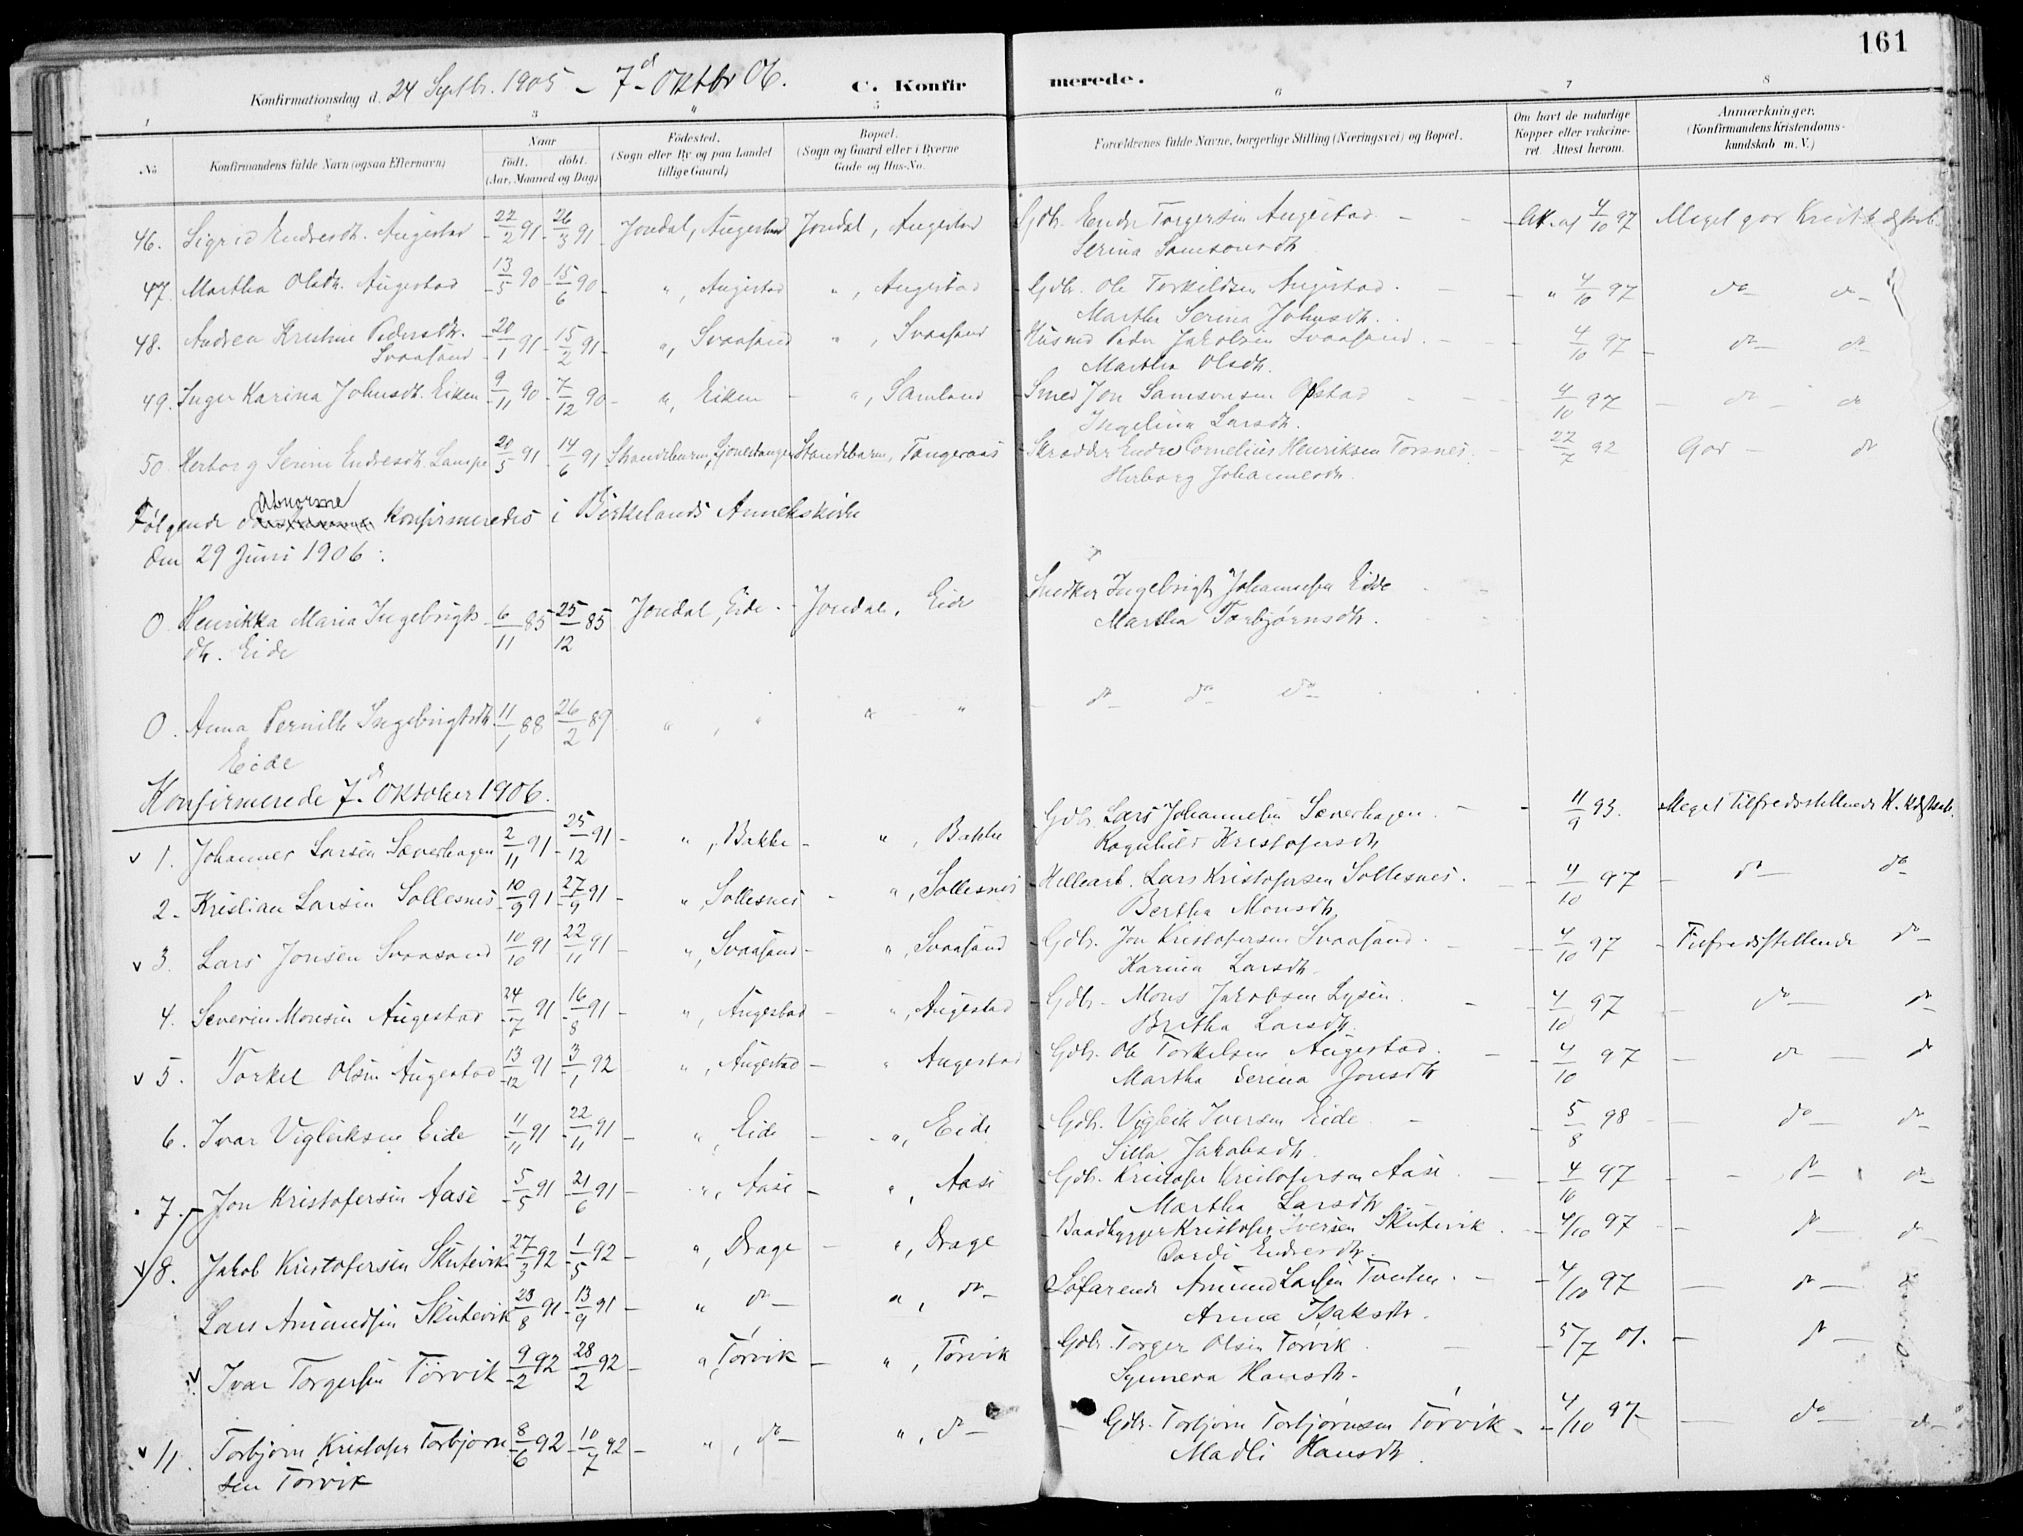 161
Konfirmationsdag d. 24 Septbr. 1905 – 7de Oktbr 06. C. Konfirmerede.
1 2 3 4 5 6 7 8
No Konfirmandens fulde Navn (ogsaa Efternavn) Naar født. døbt. (Aar, Maaned og Dag) Födested. (Sogn eller By og paa Landet tillige Gaard) Bopæl. (Sogn og Gaard eller i Byerne Gade og Hus-No. Forældrenes fulde Navne, borgerlige Stilling (Næringsvei) og Bopæl. Om havt de naturlige Kopper eller vakcineret. Attest herom. Anmærkninger. (Konfirmandens Kristendomskundskab m. V.)
46. Sigrid Endresdtr. Augestad 22/2 91 26/3 91 Jondal, Augestad Jondal, Augestad Gdbr. Endre Torgersen Augestad – At. af 4/10 97 Meget god
Serina Samsonsdtr
47. Martha Olsdtr. Augestad 13/5 90 15/6 90 ", Augestad ", Augestad Gdbr. Ole Torkildsen Augestad. " 4/10 97 do do
Martha Serina Johnsdtr.
48. Andrea Kristine Pedersdtr. 20/1 91 15/2 91 ", Svaasand ", Svaasand Husmd Peder Jakobsen Svaasand. 4/10 97 do do
Svaasand Martha Olsdtr.
49. Inger Karina Johnsdtr. Eiken 9/11 90 7/12 90 ", Eiken ", Samland Smed Jon Samsonsen 4/10 97 do do
Ingelina Larsdtr.
50. Herborg Serine Endresdtr. Lampe 20/5 91 14/6 91 Strandebarm, Strandebarm, Tangeraas Skrædder Endre Cornelius Henriksen Torsnes 27/7 92 God – do
Herborg Johannesdtr.
Følgende Abnorme konfirmeredes i Birkelands Annekskirke
den 29 Juni 1906:
0. Henrikka Maria Ingebrigts 6/11 85 25/12 85 Jondal, Eide. Jondal, Eide Snedker Ingebrigt Johannesen Eide
dtr. Eide Martha Torbjørnsdtr.
0. Anna Pernille Ingebrigtsdtr. 11/1 88 26/2 89 " " " " do do do
Eide
Konfirmerede 7de Oktober 1906.
1. Johannes Larsen Sæverhagen 2/11 91 25/12 91 ", Bakke ", Bakke Gdbr. Lars Johannesen Sæverhagen. 11/9 93. Meget Tilfredsstillende K. Kdskab.
Ragnhild Kristofersdtr
2. Kristian Larsen Sollesnes 10/9 91 27/9 91 ", Sollesnes ", Sollesnes Hellearb. Lars Kristofersen Sollesnes. 4/10 97 do do
Bertha Monsdtr
3. Lars Jonsen Svaasand 10/10 91 22/11 91 ", Svaasand ", Svaasand Gdbr. Jon Kristofersen Svaasand. 4/10 97 Tilfredsstillende do
Karina Larsdtr.
4. Severin Monsen Augestad 24/7 91 16/8 91 ", Augestad ", Augestad Gdbr. Mons Jakobsen Lysen. 4/10 97 do do
Britha Larsdtr
5. Torkel Olsen Augestad 13/12 91 3/1 92 ", Augestad " Augestad Gdbr. Ole Torkelsen Augestad. 4/10 97 do do
Martha Serina Jonsdtr
6. Ivar Vigleiksen Eide 11/11 91 22/11 91 ", Eide ", Eide Gdbr. Vigleik Iversen Eide. 5/8 98 do do
Silla Jakobsdtr.
7. Jon Kristofersen Aase 5/5 91 21/6 91 ", Aase ", Aase Gdbr. Kristofer Kristofersen Aase. 4/10 97 do do
Martha Larsdtr
8. Jakob Kristofersen Skutevik 27/3 92 1/5 92 ", Drage ", Drage Baadbygger Kristofer Iversen Skutevik. 4/10 97 do do
Endresdtr.
Lars Amundsen Skutevik 23/8 91 13/9 91 " do ", do Søfarende Amund Larsen 4/10 97 do
Anna Isaksdtr.
Ivar Torgersen Tørvik 9/2 92 28/2 92 ", Tørvik ", Tørvik Gdbr. Torger Olsen Tørvik. 5/7 01. do
Synneva Hansdtr.
11. Torbjørn Kristofer Torbjørn 8/6 92 10/7 92 ", do ", do Gdbr. Torbjørn Torbjørnsen Tørvik. 4/10 97 do do
sen Tørvik Madli Hansdtr.